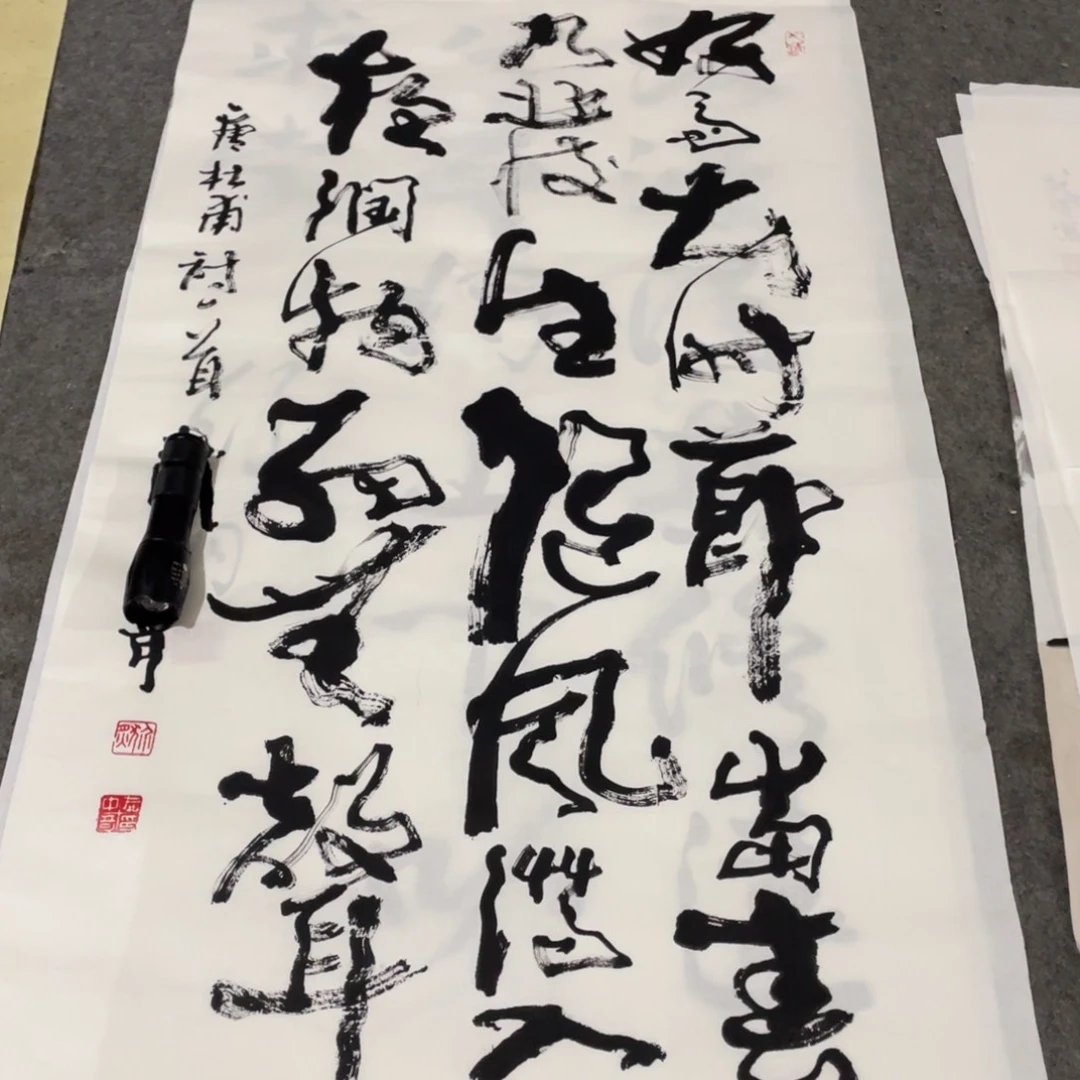 好雨知時節當春
乃發生隨風潛入
夜潤物細無聲
唐杜甫詩一首